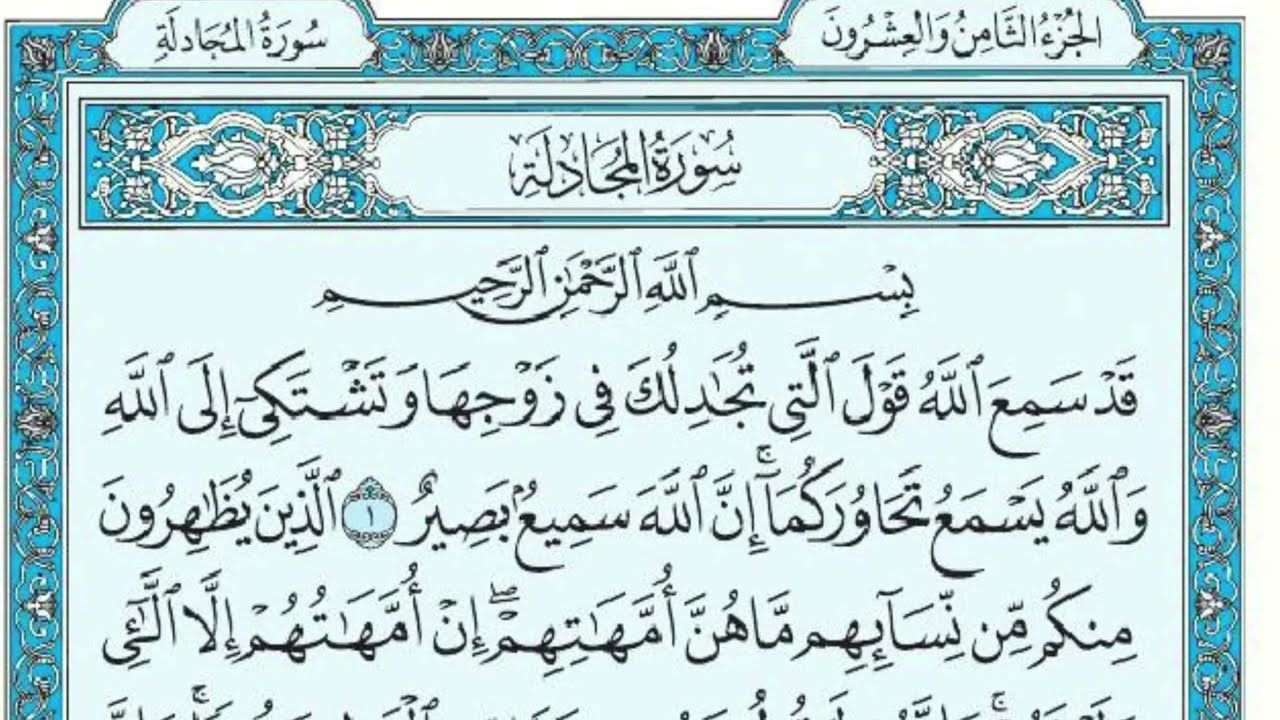 الجُزْءُ الثَّامِنُ وَالعِشْرُونَ
سُورَةُ المُجَادلَةِ
سُورَةُ المُجَادلَةِ
بِسْمِ ٱللَّهِ ٱلرَّحْمَٰنِ ٱلرَّحِيمِ
قَدْ سَمِعَ ٱللَّهُ قَوْلَ ٱلَّتِى تُجَٰدِلُكَ فِى زَوْجِهَا وَتَشْتَكِىٓ إِلَى ٱللَّهِ
وَٱللَّهُ يَسْمَعُ تَحَاوُرَكُمَآۚ إِنَّ ٱللَّهَ سَمِيعٌۢ بَصِيرٌ ١ ٱلَّذِينَ يُظَٰهِرُونَ
مِنكُم مِّن نِّسَآئِهِم مَّا هُنَّ أُمَّهَٰتِهِمْۖ إِنْ أُمَّهَٰتُهُمْ إِلَّا ٱلَّٰٓـِٔى